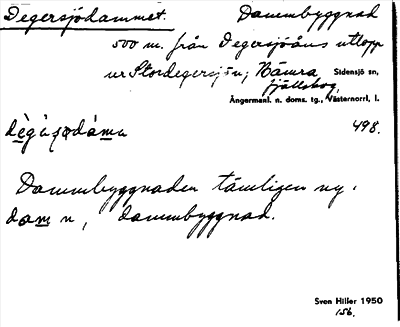 Degersjödammet. Dammbyggnad
500 m. från Degersjöåns utlopp
ur Stordegersjön; Nämra Sidensjö sn,
fjällskog,
Ångermanl. n. doms. tg., Västernorrl. l.
498.
Dammbyggnaden tämligen ny.
dam n, dammbyggnad.
Sven Hiller 1950
156.